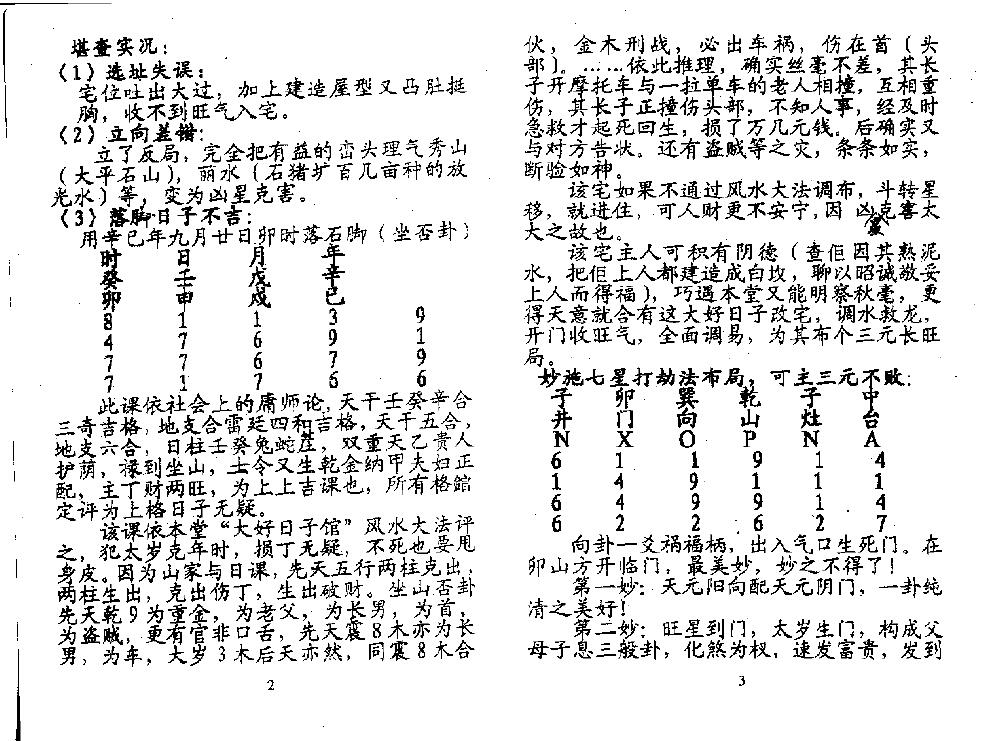 堪查实况：
（1）选址失误：
宅位吐出大过，加上建造屋型又凸肚挺
胸，收不到旺气入宅。
（2）立向差错：
立了反局，完全把有益的峦头理气秀山
（大平石山），丽水（石猪圹百几亩种的放
光水）等，变为凶星克害。
（3）落脚日子不吉：
用辛巳年九月廿日卯时落石脚（坐否卦）
时 日 月 年
癸 壬 戊 辛
卯 申 戌 巳
8 1 1 3 9
4 7 6 9 1
7 7 6 7 9
7 1 7 6 6
此课依社会上的庸师论，天干壬癸辛合
三奇吉格，地支合雷廷四和吉格，天干五合，
地支六合，日柱壬癸兔蛇庄，双重天乙贵人
护荫，禄到坐山，士令又生乾金纳甲夫妇正
配，主丁财两旺，为上上吉课也，所有格馆
定评为上格日子无疑。
该课依本堂“大好日子馆”风水大法评
之，犯太岁克年时，损丁无疑，不死也要甩
身皮。因为山家与日课，先天五行两柱克出，
两柱生出，克出伤丁，生出破财。坐山否卦
先天乾9为重金，为老父，为长男，为首，
为盗贼，更有官非口舌，先天震8木亦为长
男，为车，大岁3木后天亦然，同震8木合
2
伙，金木刑战，必出车祸，伤在首（头
部）。……依此推理，确实丝毫不差，其长
子开摩托车与一拉单车的老人相撞，互相重
伤，其长子正撞伤头部，不知人事，经及时
急救才起死回生，损了万几元钱。后确实又
与对方告状。还有盗贼等之灾，条条如实，
断验如神。
该宅如果不通过风水大法调布，斗转星
移，就进住，可人财更不安宁，因凶克害太
大之故也。
该宅主人可积有阴德（查佢因其熟泥
水，把佢上人都建造成白坟，聊以昭诚敬妥
上人而得福），巧遇本堂又能明察秋毫，更
得天意就合有这大好日子改宅，调水救龙，
开门收旺气，全面调易，为其布个三元长旺
局。
妙施七星打劫法布局，可主三元不败：
子 卯 巽 乾 子 中
井 门 向 山 灶 台
N X O P N A
6 1 1 9 1 4
1 4 9 9 1 1
6 4 9 1 1 4
6 2 2 6 2 7
向卦一爻祸福柄，出入气口生死门。在
卯山方开临门，最美妙，妙之不得了！
第一妙：天元阳向配天元阴门，一卦纯
清之美好！
第二妙：旺星到门，太岁生门，构成父
母子息三般卦，化煞为权，速发富贵，发到
3